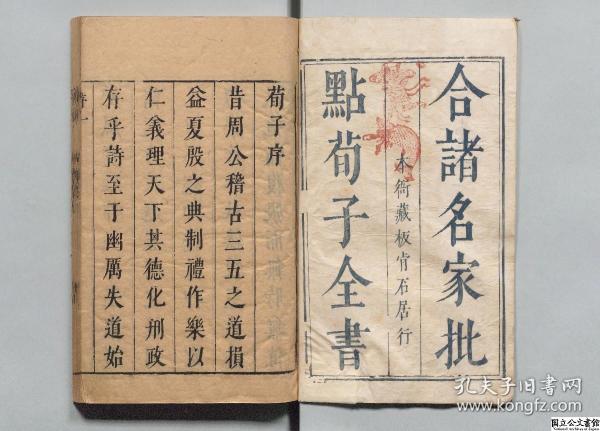 合諸名家批
點荀子全書
本衙藏板 肯石居行
荀子序
昔周公稽古三五之道損
益夏殷之典制禮作樂以
仁義理天下其德化刑政
存乎詩至于幽厲失道始
序一
孔夫子旧书网
www.kongfz.com
国立公文書館
National Archives of Japan